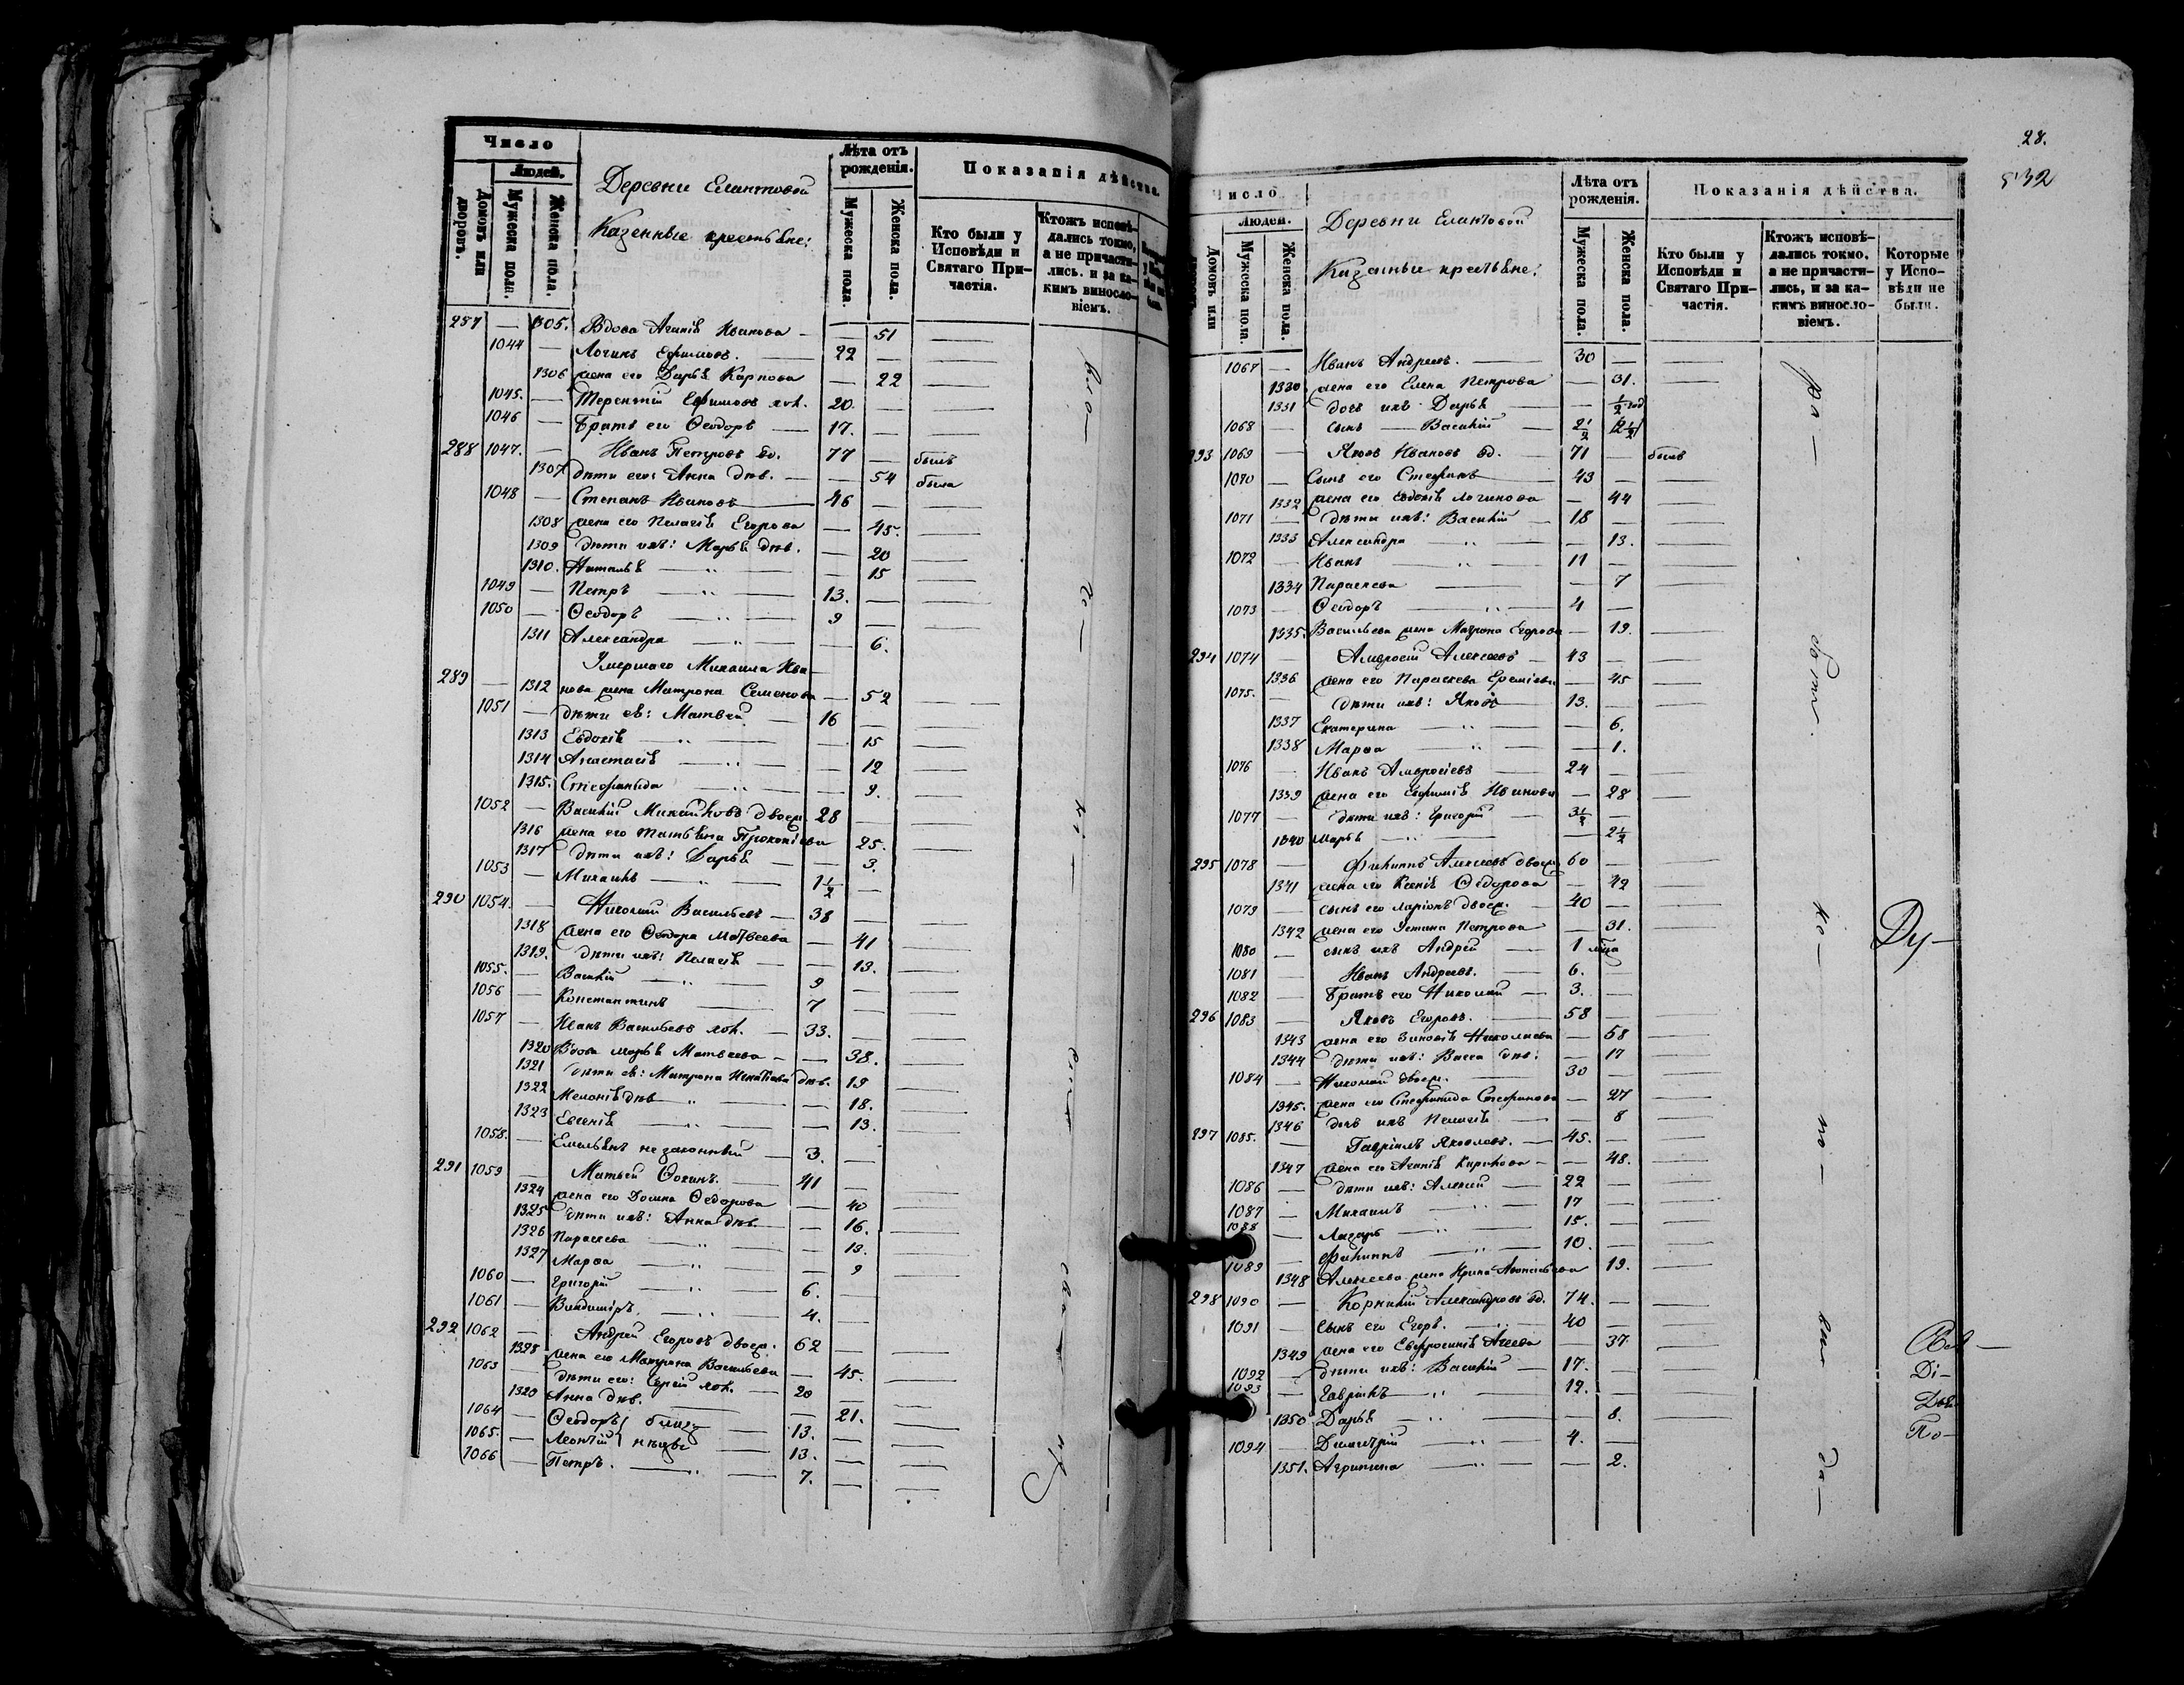 Число
Людей.
Домовъ или дворовъ.
Мужеска пола.
Женска пола.
Деревни Елантовой
Казенные крестьяне:
Лѣта отъ рожденія.
Мужеска пола.
Женска пола.
Показанія дѣйства.
Кто были у Исповѣди и Святаго Причастія.
Ктожъ исповѣдались токмо, а не причастились. и за какимъ винословіемъ.
287 — 1305. Вдова Агапія Иванова — — 51
1044 — Логинъ Ефимовъ. — 22 —
1306 жена его Дарья Карпова — 22
1045. — Терентій Ефимовъ хол. 20. —
1046 — Братъ его Ѳеодоръ — 17. —
288 1047. — Иванъ Петровъ вд. 77 — былъ
1307 дѣти его: Анна двѣ. — — 54 была
1048 — Степанъ Ивановъ — 46 —
1308 жена его Пелагія Егорова — 45.
1309 дѣти ихъ: Марья двѣ. — 20
1310. Наталья — „ — — 15
1049 — Петръ — „ — 13. —
1050 — Ѳеодоръ — „ — 9 —
1311 Александра — „ — — 6.
Умершаго Михаила Ива-
289 — 1312 нова жена Матрона Семенова — 52
1051 — дѣти ея: Матвей — 16 —
1313 Евдокія — „ — — 15
1314 Анастасія — „ — — 12
1315. Стефанида — „ — — 9.
1052 — Василій Михайловъ двоеж. 28 —
1316 жена его Татьяна Прокопіева 25.
1317 дѣти ихъ: Дарья — — 3.
1053 — Михаилъ — „ — 1 1/2 —
290 1054. — Николай Васильевъ — 38 —
1318 жена его Ѳеодора Матвеева — 41
1319. дѣти ихъ: Пелагія — — 13.
1055. — Василій — „ — 9 —
1056 — Константинъ — 7 —
1057 — Иванъ Васильевъ хол. — 33. —
1320 Вдова Марья Матвеева — — 38.
1321 дѣти ея: Матрона Игнатіева двѣ. 19
1322 Меланія двѣ — „ — — 18.
1323 Евгенія — „ — — 13.
1058. — Емельянъ незаконный — 3. —
291 1059 — Матвей Ѳокинъ. — 41 —
1324 жена его Домна Ѳедорова — 40
1325 дѣти ихъ: Анна двѣ — — 16.
1326 Параскева — „ — — 13.
1327 Марѳа — „ — — 9
1060 — Григорій — „ — 6. —
1061 — Владиміръ — „ — 4. —
292 1062 — Андрей Егоровъ двоеж. 62 —
1328 жена его Матрона Васильева — 45.
1063 — дѣти его: Сергій хол. — 20 —
1320 Анна двѣ. — — 21.
1064 — Ѳеодоръ близ- — 13. —
1065. — Леонтій нецы — 13. —
1066 — Петръ. — „ — 7. —
28.
532
Число
Людей.
Домовъ или
Мужеска пола.
Женска пола.
Деревни Елантовой
Казенные крестьяне:
Лѣта отъ рожденія.
Мужеска пола.
Женска пола.
Показанія дѣйства.
Кто были у Исповѣди и Святаго Причастія.
Ктожъ исповѣдались токмо, а не причастились, и за какимъ винословіемъ.
Которые у Исповѣди не были.
1067 — Иванъ Андреевъ. — 30 —
1330 жена его Елена Петрова — 31.
1331 дочь ихъ Дарья — — 1/2 год
1068 — сынъ — Василій — 2 1/2
293 1069 — Яковъ Ивановъ вд. — 71 — былъ
1070 — Сынъ его Стефанъ — 43 —
1332 жена его Евдокія Логинова — 44
1071 — дѣти ихъ: Василій — 18 —
1333 Александра — „ — — 13.
1072 — Иванъ — „ — 11 —
1334 Параскева — — 7
1073 — Ѳеодоръ — „ — 4 —
1335. Васильева жена Матрона Егорова — 19.
294 1074 — Амвросій Алексеевъ — 43 —
1336 жена его Параскева Ереміева — 45
1075. — дѣти ихъ: Яковъ — 13. —
1337 Екатерина — „ — — 6.
1338 Марѳа — „ — — 1.
1076 — Иванъ Амвросіевъ — 24 —
1339 жена его Евфимія Иванова — 28
1077 — дѣти ихъ: Григорій — 3 1/2 —
1340 Марья — „ — — 2 1/2
295 1078 — Филиппъ Алексеевъ двоеж. 60 —
1341 жена его Ксенія Ѳедорова — 42
1079 — сынъ его Ларіонъ двоеж. — 40 —
1342 жена его Устина Петрова — 31.
1080 — сынъ ихъ Андрей — 1 мца
1081 — Иванъ Андреевъ. — 6. —
1082 — Братъ его Николай — 3. —
296 1083 — Яковъ Егоровъ. — 58 —
1343 жена его Зиновія Николаева — 58
1344 дѣти ихъ: Васса двѣ. — 17
1084 — Николай двоеж. — 30 —
1345. жена его Стефанида Стефанова — 27
1346 дочь ихъ Пелагія — — 8
297 1085. — Гавріилъ Яковлевъ. — 45. —
1347 жена его Агапія Кирилова — — 48.
1086 — дѣти ихъ: Алексей — 22 —
1087 — Михаилъ — „ — 17 —
1088 — Лазарь — „ — 15. —
1089 — Филиппъ — „ — 10. —
1348 Алексеева жена Ирина 19.
298 1090 — Корнилій Александровъ вд. 74. —
1091 — Сынъ его Егоръ. — 40 —
1349 жена его Евфросинія Агеева — 37
1092 — дѣти ихъ: Василій — 17. —
1093 — Гавріилъ — „ — 12. —
1350 Дарья — „ — — 8.
1094 — Димитрій — „ — 4. —
1351. Агрипина — „ — — 2.
Ду-
Ді-
По-